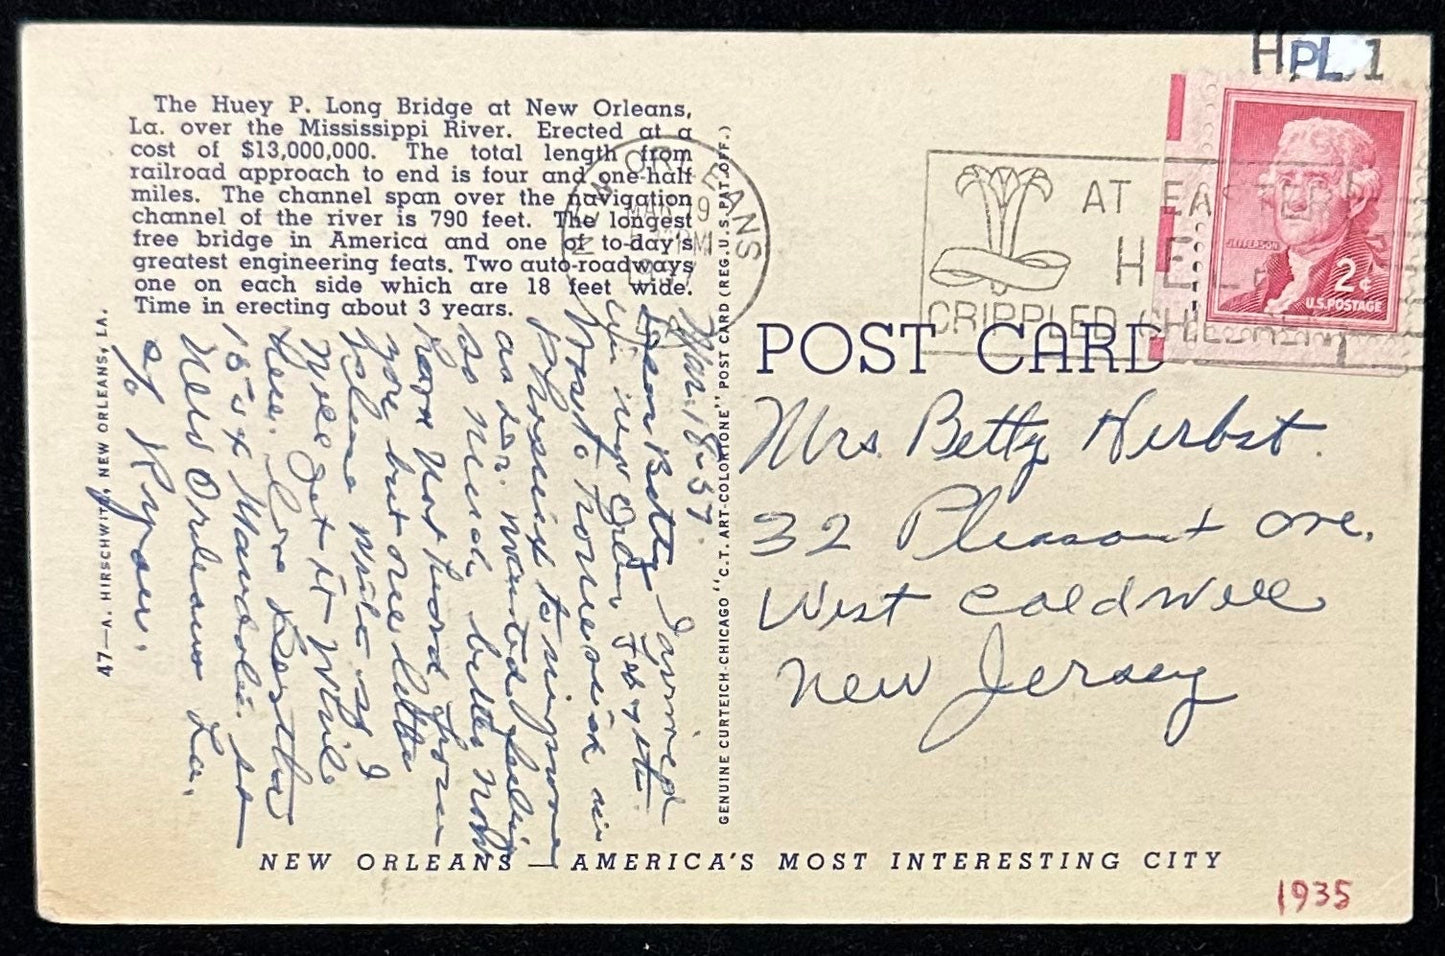 The Huey P. Long Bridge at New Orleans,
La. over the Mississippi River. Erected at a
cost of $13,000,000. The total length from
railroad approach to end is four and one-half
miles. The channel span over the navigation
channel of the river is 790 feet. The longest
free bridge in America and one of to-day's
greatest engineering feats. Two auto-roadways
one on each side which are 18 feet wide.
Time in erecting about 3 years.
47—A. HIRSCHWITZ, NEW ORLEANS, LA.
Mar. 18-57.
Dear Betty I arrived
in new Orleans
as I wanted
so much better now
have not heard from
you but one letter
please write as I
will get it while
here.
New Orleans La.
c/o Ryan.
GENUINE CURTEICH-CHICAGO "C.T. ART-COLORTONE" POST CARD (REG. U.S. PAT. OFF.)
NEW ORLEANS
MAR 19
LA
HPL 1
AT EASTER
HELP
CRIPPLED CHILDREN
JEFFERSON
2¢
U.S. POSTAGE
POST CARD
Mrs. Betty Herbst.
32 Pleasant Ave.
West Caldwell
New Jersey
NEW ORLEANS — AMERICA'S MOST INTERESTING CITY
1935